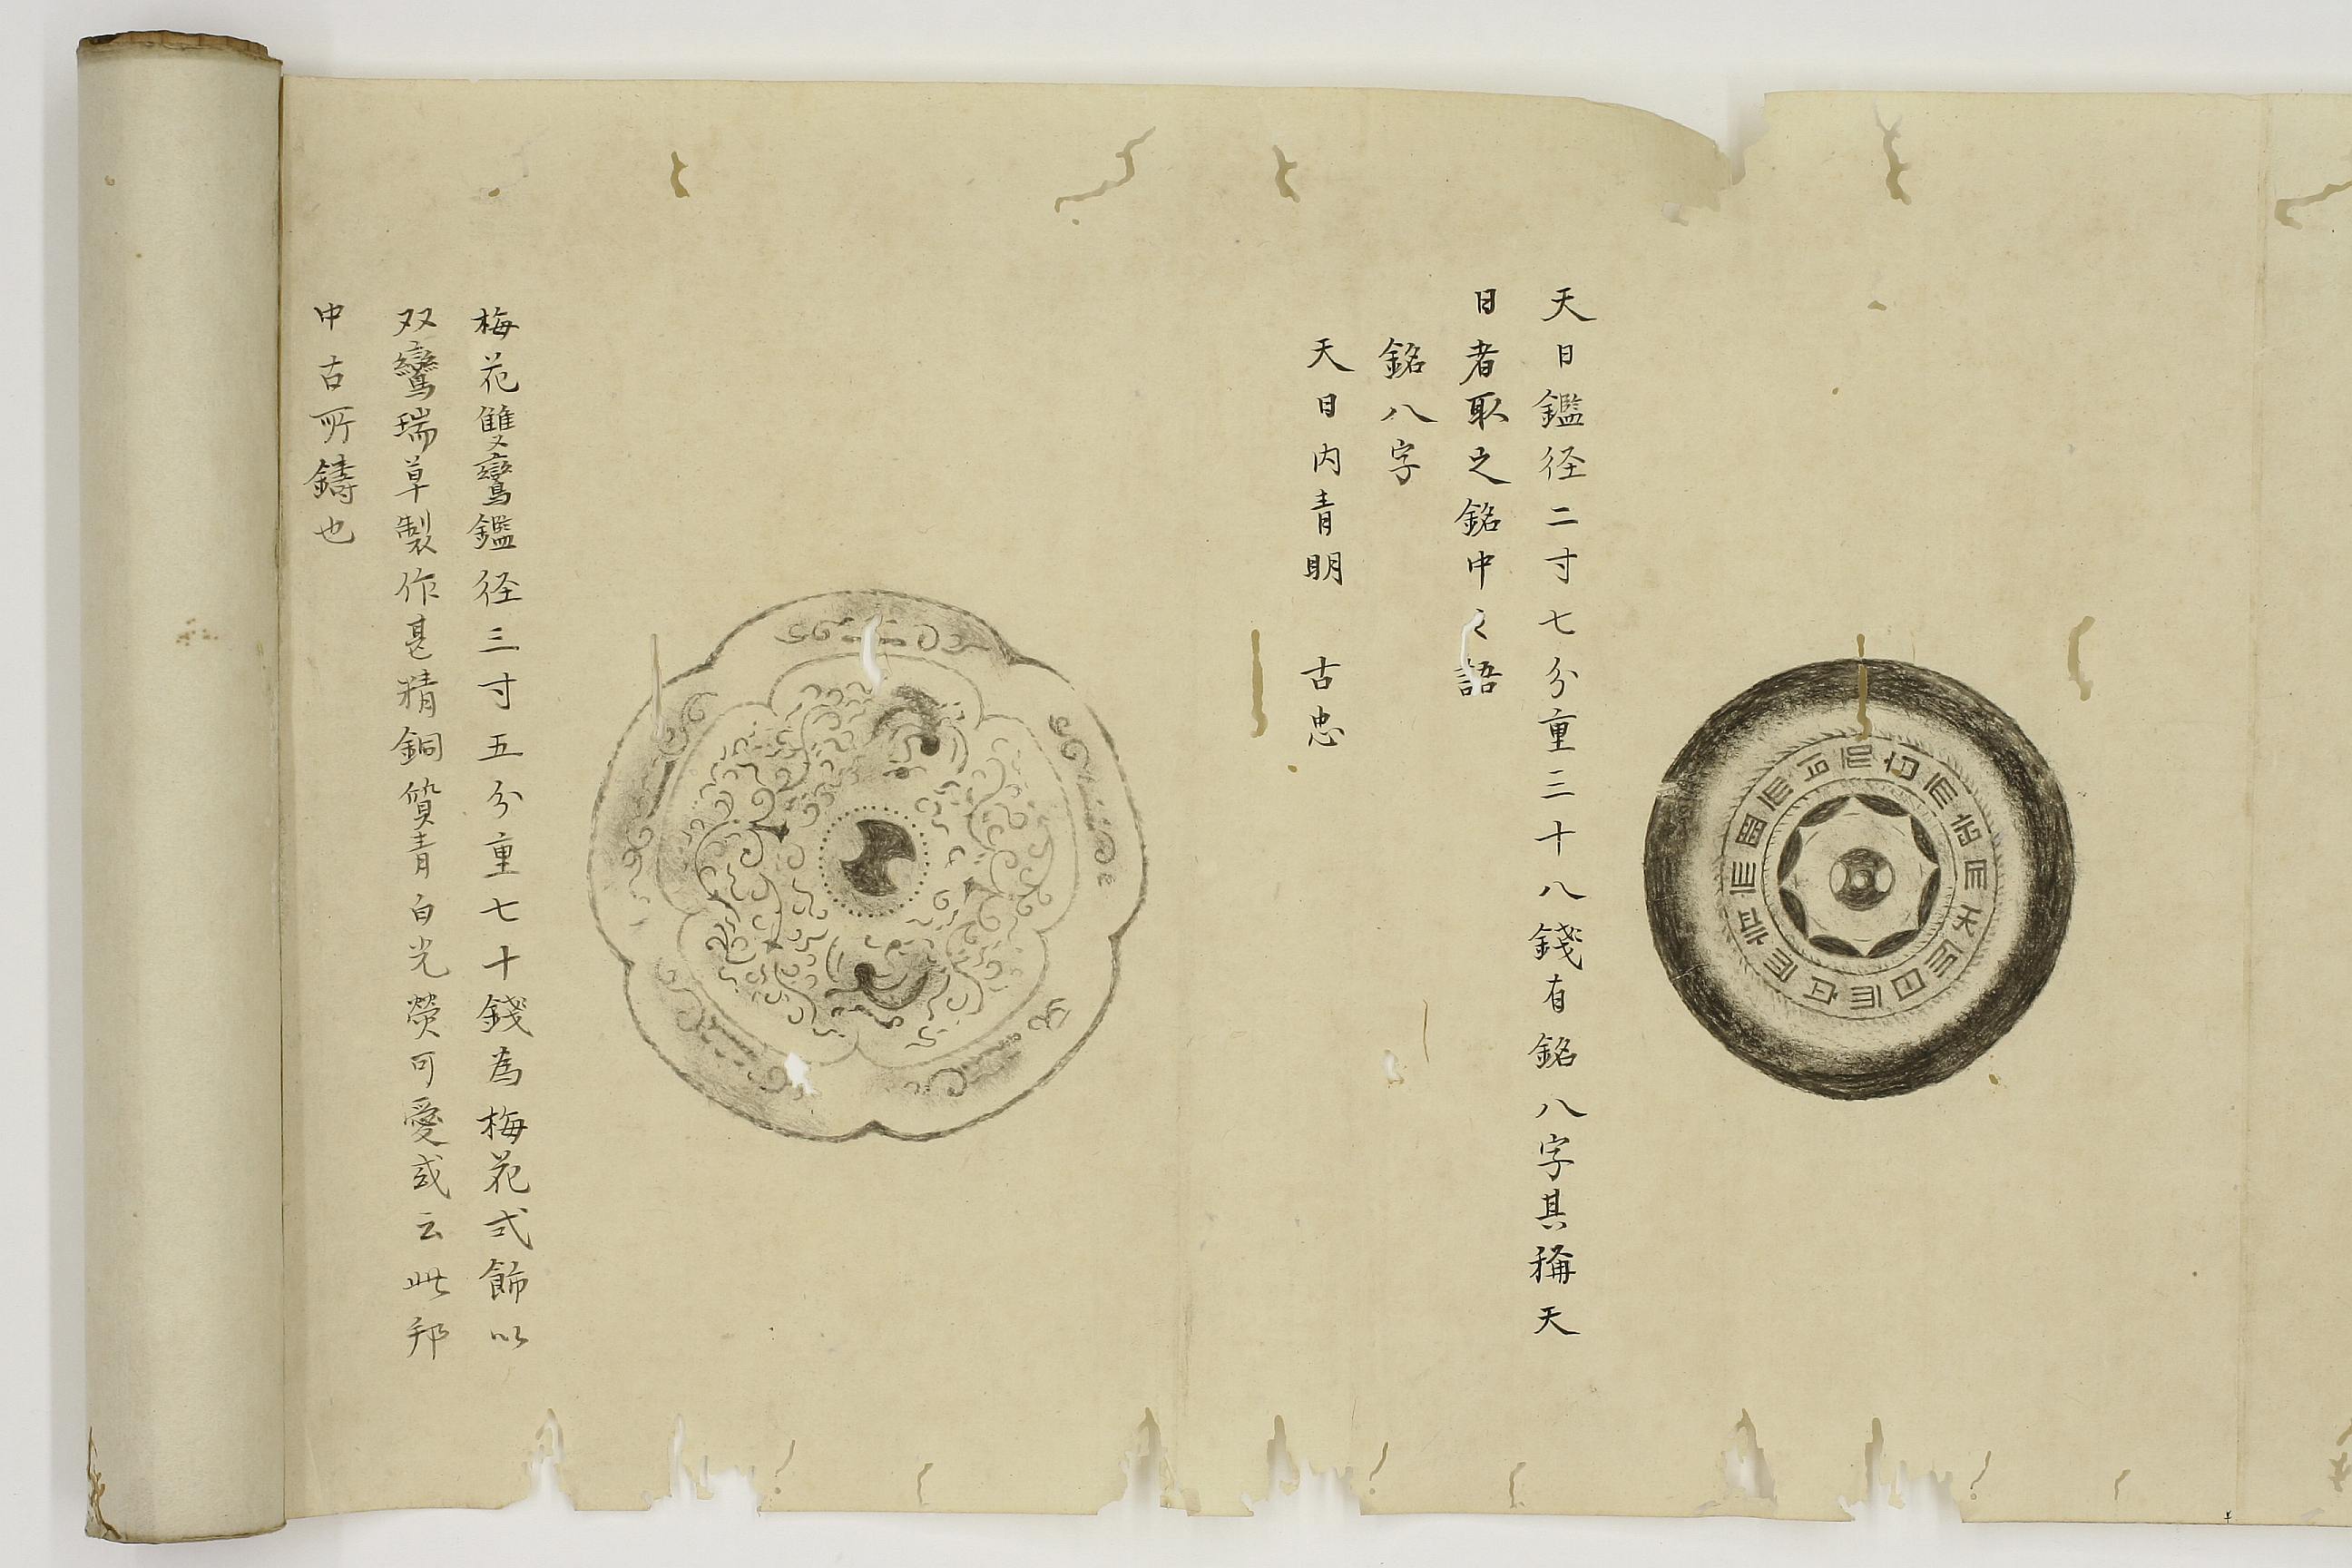 天日鑑径二寸七分重三十八錢有銘八字其稱天
日者取之銘中之語
銘八字
天日内青明 古忠
梅花雙鸞鑑径三寸五分重七十錢為梅花式飾以
双鸞瑞草製作甚精銅質青白光熒可愛或云此邦
中古所鑄也